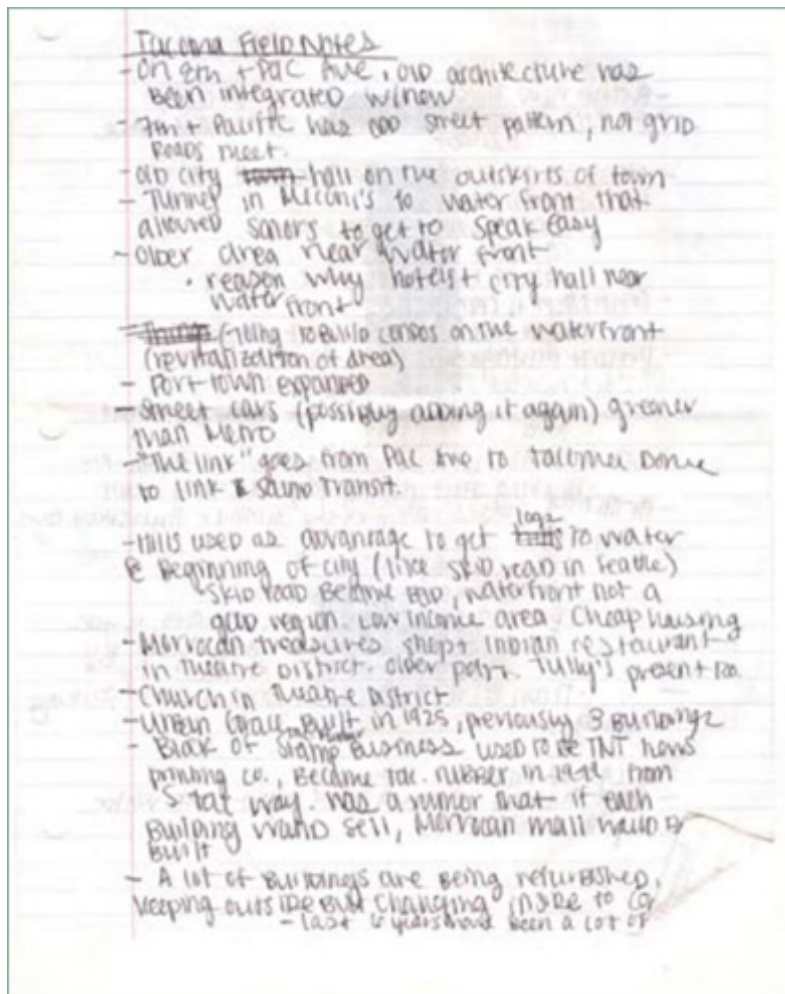 Tacoma Field Notes
- On 8th + Pac Ave, old architecture has
been integrated w/new
- 7th + Pacific has odd street pattern, not grid
Roads meet.
- old city hall on the outskirts of town
- Tunnel in Meconi's to water front that
allowed sailors to get to speak easy
- older area near water front
• reason why hotels + city hall near
waterfront
- trying to build condos on the waterfront
(revitalization of area)
- Port town expanded
- Street cars (possibly adding it again) greener
than Metro
- "The link" goes from Pac Ave to Tacoma Dome
to link Sound Transit.
- Hills used as advantage to get logs to water
@ Beginning of city (like skid road in Seattle)
skid road Became bad, waterfront not a
good region low income area Cheap housing
- Morrocan treasures shop + Indian restaurant
in Theatre District. older part. Tully's present too
- Church in Theatre District
- Urban Grace Built in 1925, previously 3 Buildings
- Block of stamp Business used to be TNT news
printing co., Became tac. rubber in from
way. has a rumor that if each
Building would sell, Morrocan mall would B
Built
- A lot of Buildings are being refurbished,
keeping outside But changing inside to
- last 6 years have been a lot of